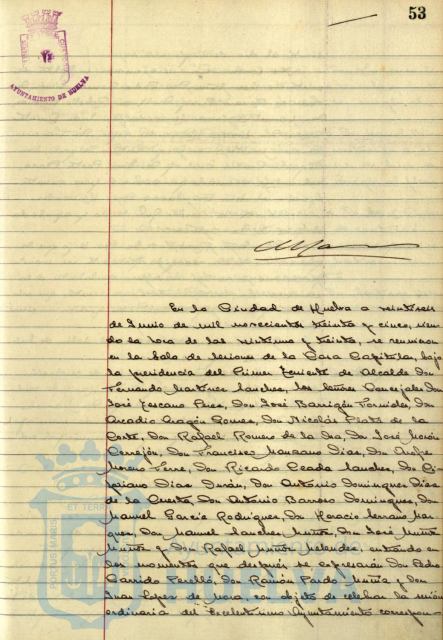 53
AYUNTAMIENTO DE HUELVA
En la Ciudad de Huelva a veintiseis
de Junio de mil novecientos treinta y cinco, sien-
do la hora de las veintiuna y treinta, se reunieron
en la Sala de sesiones de la Casa Capitular, bajo
la Presidencia del Primer Teniente de Alcalde Don
Fernando Martinez Sanchez, los Señores Concejales Don
José Pons, Don José Barrigón Fornieles, Don
Arcadio Aragón Gomez, Don Nicolás Plata de la
Corte, Don Rafael Romero de la Osa, Don José Morón
Cerrejón, Don Francisco Manzano Diaz, Don Andres
Moreno, Don Ricardo Sanchez, Don Ci-
priano Diaz Durán, Don Antonio Dominguez Diaz
de la Cuesta, Don Antonio Barroso Dominguez, Don
Manuel Garcia Rodriguez, Don Horacio Serrano Mar-
quez, Don Manuel Sanchez Muñoz, Don José Muñiz
Muñiz y Don Rafael Muñoz Melendez, entrando en
los momentos que después se expresarán Don Pedro
Garrido Perelló, Don Ramón Pardo Muñiz y Don
Juan Lopez de Mora, con objeto de celebrar la sesión
ordinaria del Excelentisimo Ayuntamiento correspon-
PORTUS MARIS
ET TERR